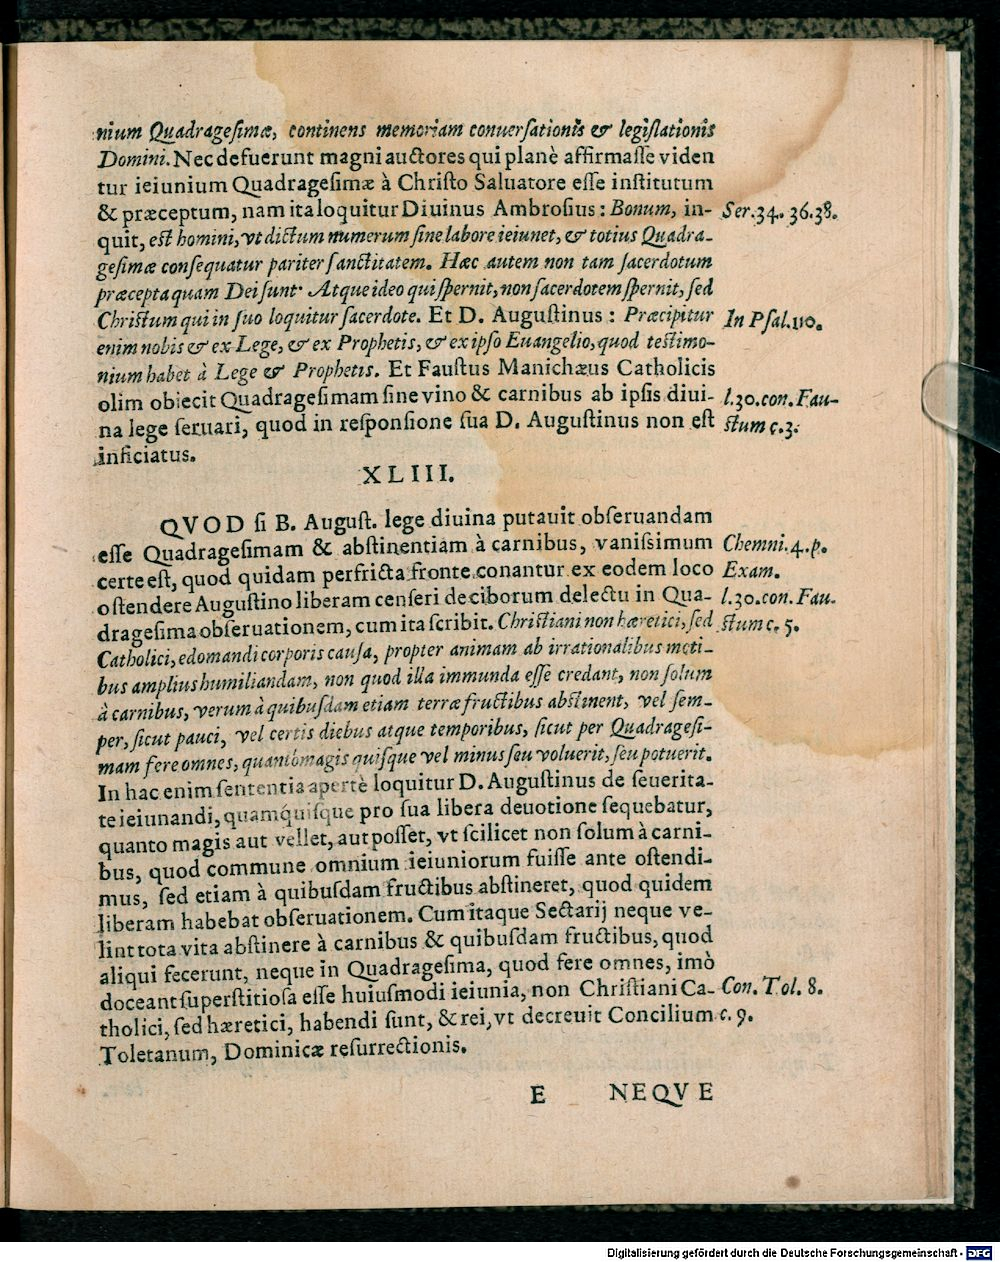 nium Quadragesimæ, continens memoriam conuersationis & legislationis
Domini. Nec defuerunt magni auctores qui planè affirmasse viden
tur ieiunium Quadragesimæ à Christo Saluatore esse institutum
& præceptum, nam ita loquitur Diuinus Ambrosius: Bonum, in-
quit, est homini, vt dictum numerum sine labore ieiunet, & totius Quadra-
gesimæ consequatur pariter sanctitatem. Hæc autem non tam sacerdotum
præcepta quam Dei sunt. Atque ideo qui spernit, non sacerdotem spernit, sed
Christum qui in suo loquitur sacerdote. Et D. Augustinus: Præcipitur
enim nobis & ex Lege, & ex Prophetis, & ex ipso Euangelio, quod testimo-
nium habet à Lege & Prophetis. Et Faustus Manichæus Catholicis
olim obiecit Quadragesimam sine vino & carnibus ab ipsis diui-
na lege seruari, quod in responsione sua D. Augustinus non est
inficiatus.
Ser. 34. 36. 38.
In Psal. 110.
l. 30. con. Fau-
stum c. 3.
XLIII.
QVOD si B. August. lege diuina putauit obseruandam
esse Quadragesimam & abstinentiam à carnibus, vanissimum
certe est, quod quidam perfricta fronte conantur ex eodem loco
ostendere Augustino liberam censeri de ciborum delectu in Qua-
dragesima obseruationem, cum ita scribit. Christiani non hæretici, sed
Catholici, edomandi corporis causa, propter animam ab irrationalibus moti-
bus amplius humiliandam, non quod illa immunda esse credant, non solum
à carnibus, verum à quibusdam etiam terræ fructibus abstinent, vel sem-
per, sicut pauci, vel certis diebus atque temporibus, sicut per Quadragesi-
mam fere omnes, quantò magis quisque vel minus seu voluerit, seu potuerit.
In hac enim sententia apertè loquitur D. Augustinus de seuerita-
te ieiunandi, quam quisque pro sua libera deuotione sequebatur,
quanto magis aut vellet, aut posset, vt scilicet non solum à carni-
bus, quod commune omnium ieiuniorum fuisse ante ostendi-
mus, sed etiam à quibusdam fructibus abstineret, quod quidem
liberam habebat obseruationem. Cum itaque Sectarij neque ve-
lint tota vita abstinere à carnibus & quibusdam fructibus, quod
aliqui fecerunt, neque in Quadragesima, quod fere omnes, imò
doceant superstitiosa esse huiusmodi ieiunia, non Christiani Ca-
tholici, sed hæretici, habendi sunt, & rei, vt decreuit Concilium
Toletanum, Dominicæ resurrectionis.
Chemni. 4. p.
Exam.
l. 30. con. Fau-
stum c. 5.
Con. Tol. 8.
c. 9.
E NEQVE
Digitalisierung gefördert durch die Deutsche Forschungsgemeinschaft - DFG